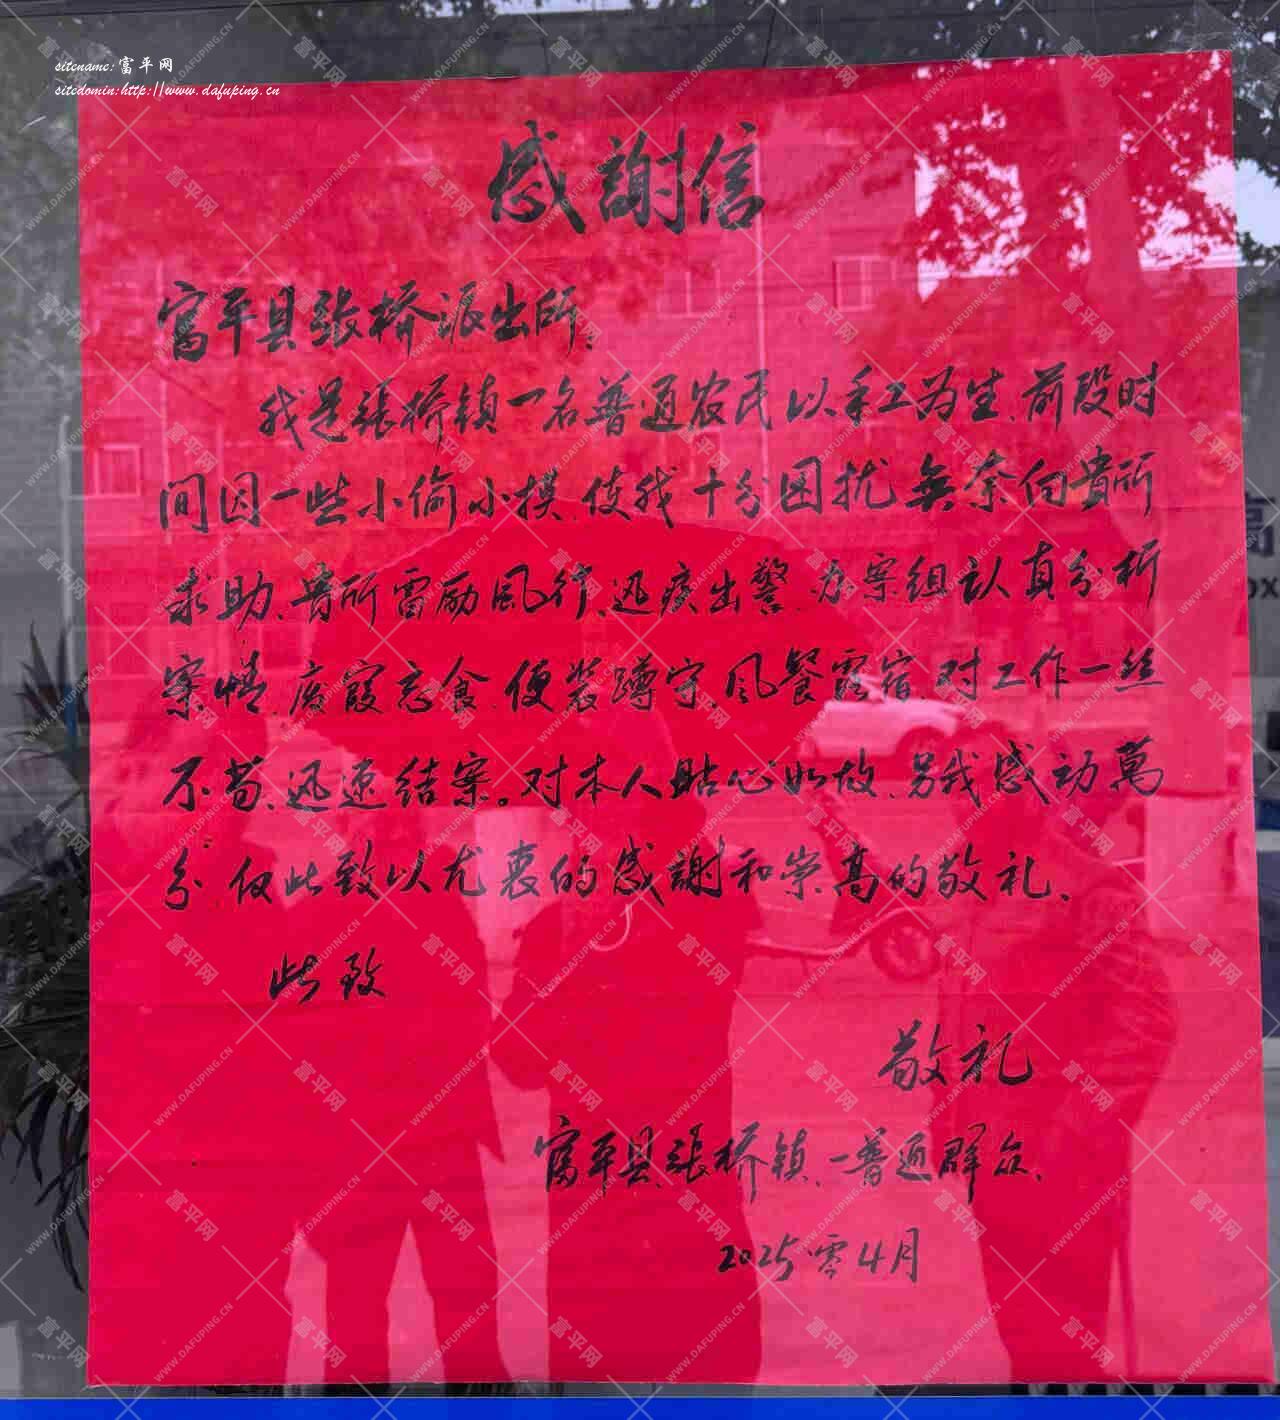 sitename:富平网
sitedomin:http://www.dafuping.cn
感謝信
富平县张桥派出所.
我是张桥镇一名普通农民以手工为生.前段时
间因一些小偷小摸.使我十分困扰無奈向贵所
求助.贵所雷励風行.迅疾出警.办案组认真分析
案情.废寝忘食.便装蹲守.风餐露宿.对工作一丝
不苟.迅速结案。对本人贴心如故.另我感动萬
分.仅此致以尤衷的感謝和崇高的敬礼.
此致
敬礼
富平县.张桥镇.一普通群众.
2025零4月
富平网
WWW.DAFUPING.CN